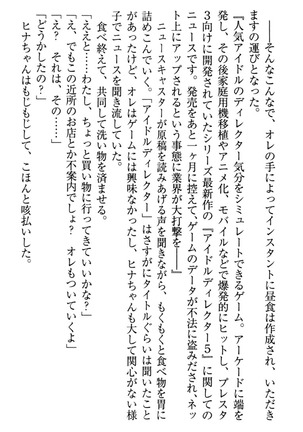 ――そんなこんなで、オレの手によってインスタントに昼食は作成され、いただき
ますの運びとなった。
『人気アイドルのディレクター気分をシミュレートできるゲーム。アーケードに端を
発し、その後家庭用機移植やアニメ化、モバイルなどで爆発的にヒットし、プレスタ
３向けに開発されていたシリーズ最新作の『アイドルディレクター５』に関しての
ニュースです。発売をあと一ヶ月に控えて、ゲームのデータが不法に盗みだされ、ネッ
ト上にアップされるという事態に業界が大打撃を――』
ニュースキャスターが原稿を読みあげる声を聞きながら、もくもくと食べ物を胃に
詰めこんでいく。「アイドルディレクター」はさすがにタイトルぐらいは聞いたこと
があったけど、オレはゲームには興味なかったし、ヒナちゃんも大して関心がない様
子でニュースを聞き流していた。
食べ終えて、共同して洗い物を済ませる。
「ええと……わたし、ちょっと買い物に行ってきていいかな？」
「え、でもこの近所のお店とか不案内でしょ？　オレもついていくよ」
「え？　それは、その……」
「どうかしたの？」
ヒナちゃんはもじもじして、こほんと咳払いした。